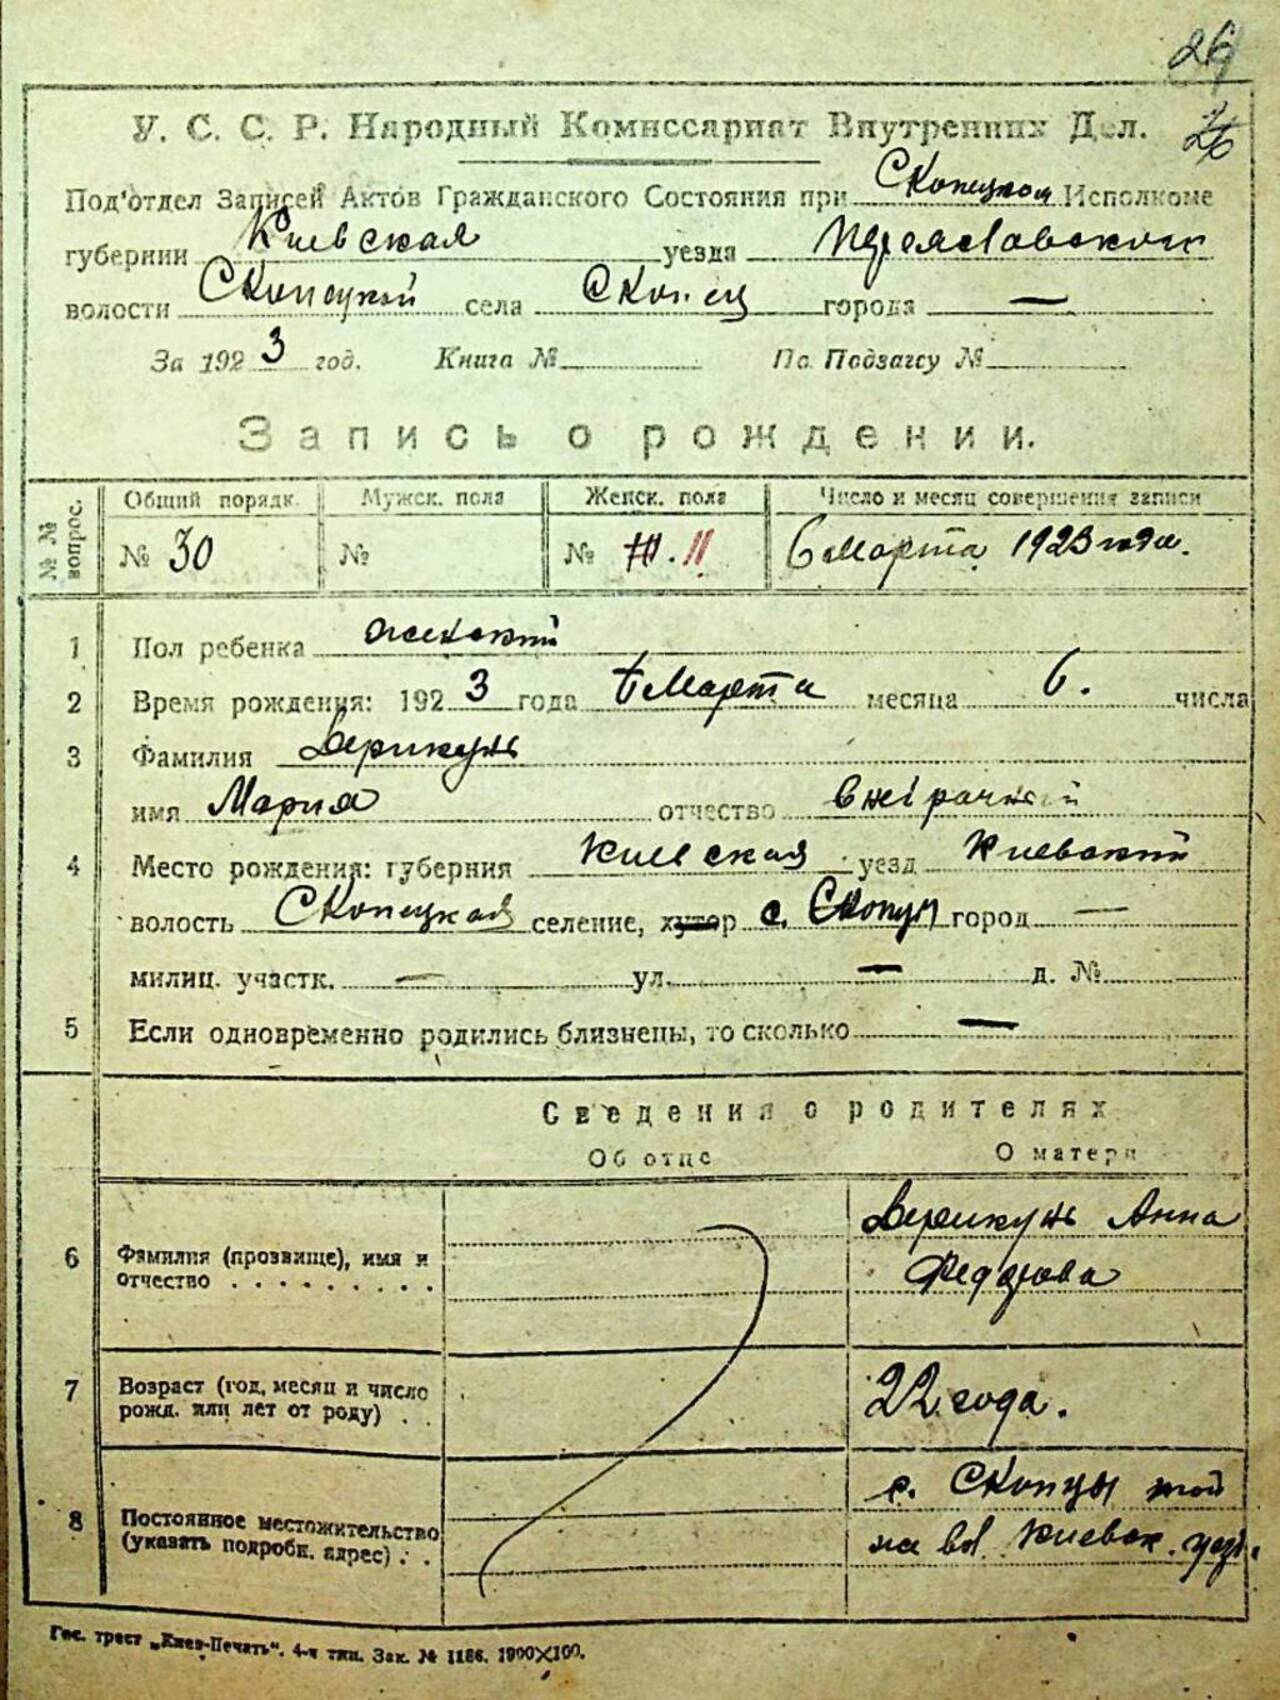 26
У. С. С. Р. Народный Комиссариат Внутренних Дел.
26
Под'отдел Записей Актов Гражданского Состояния при Скопецком Исполкоме
губернии Киевская уезда Переяславского
волости Скопецкой села Скопец города —
За 1923 год. Книга № По Подзагсу №
Запись о рождении.
№№ вопрос. Общий порядк. Мужск. пола Женск. пола Число и месяц совершения записи
№ 30 № № 11 6 марта 1923 года.
1 Пол ребенка женский
2 Время рождения: 1923 года 6 Марта месяца 6. числа
3 Фамилия Верикунь
имя Мария отчество внебрачний
4 Место рождения: губерния Киевская уезд Киевский
волость Скопецкая селение, хутор с. Скопцы город —
милиц. участк. — ул. — д. №
5 Если одновременно родились близнецы, то сколько —
Сведения о родителях
Об отце О матери
6 Фамилия (прозвище), имя и
отчество . . . . . . . . .
Верикунь Анна
Федорова
7 Возраст (год, месяц и число
рожд. или лет от роду) . .
22 года.
8 Постоянное местожительство
(указать подробн. адрес) . .
с. Скопцы той
вол. Киевск. уез.
Гос. трест „Киев-Печать“. 4-я тип. Зак. № 1186. 1900×100.